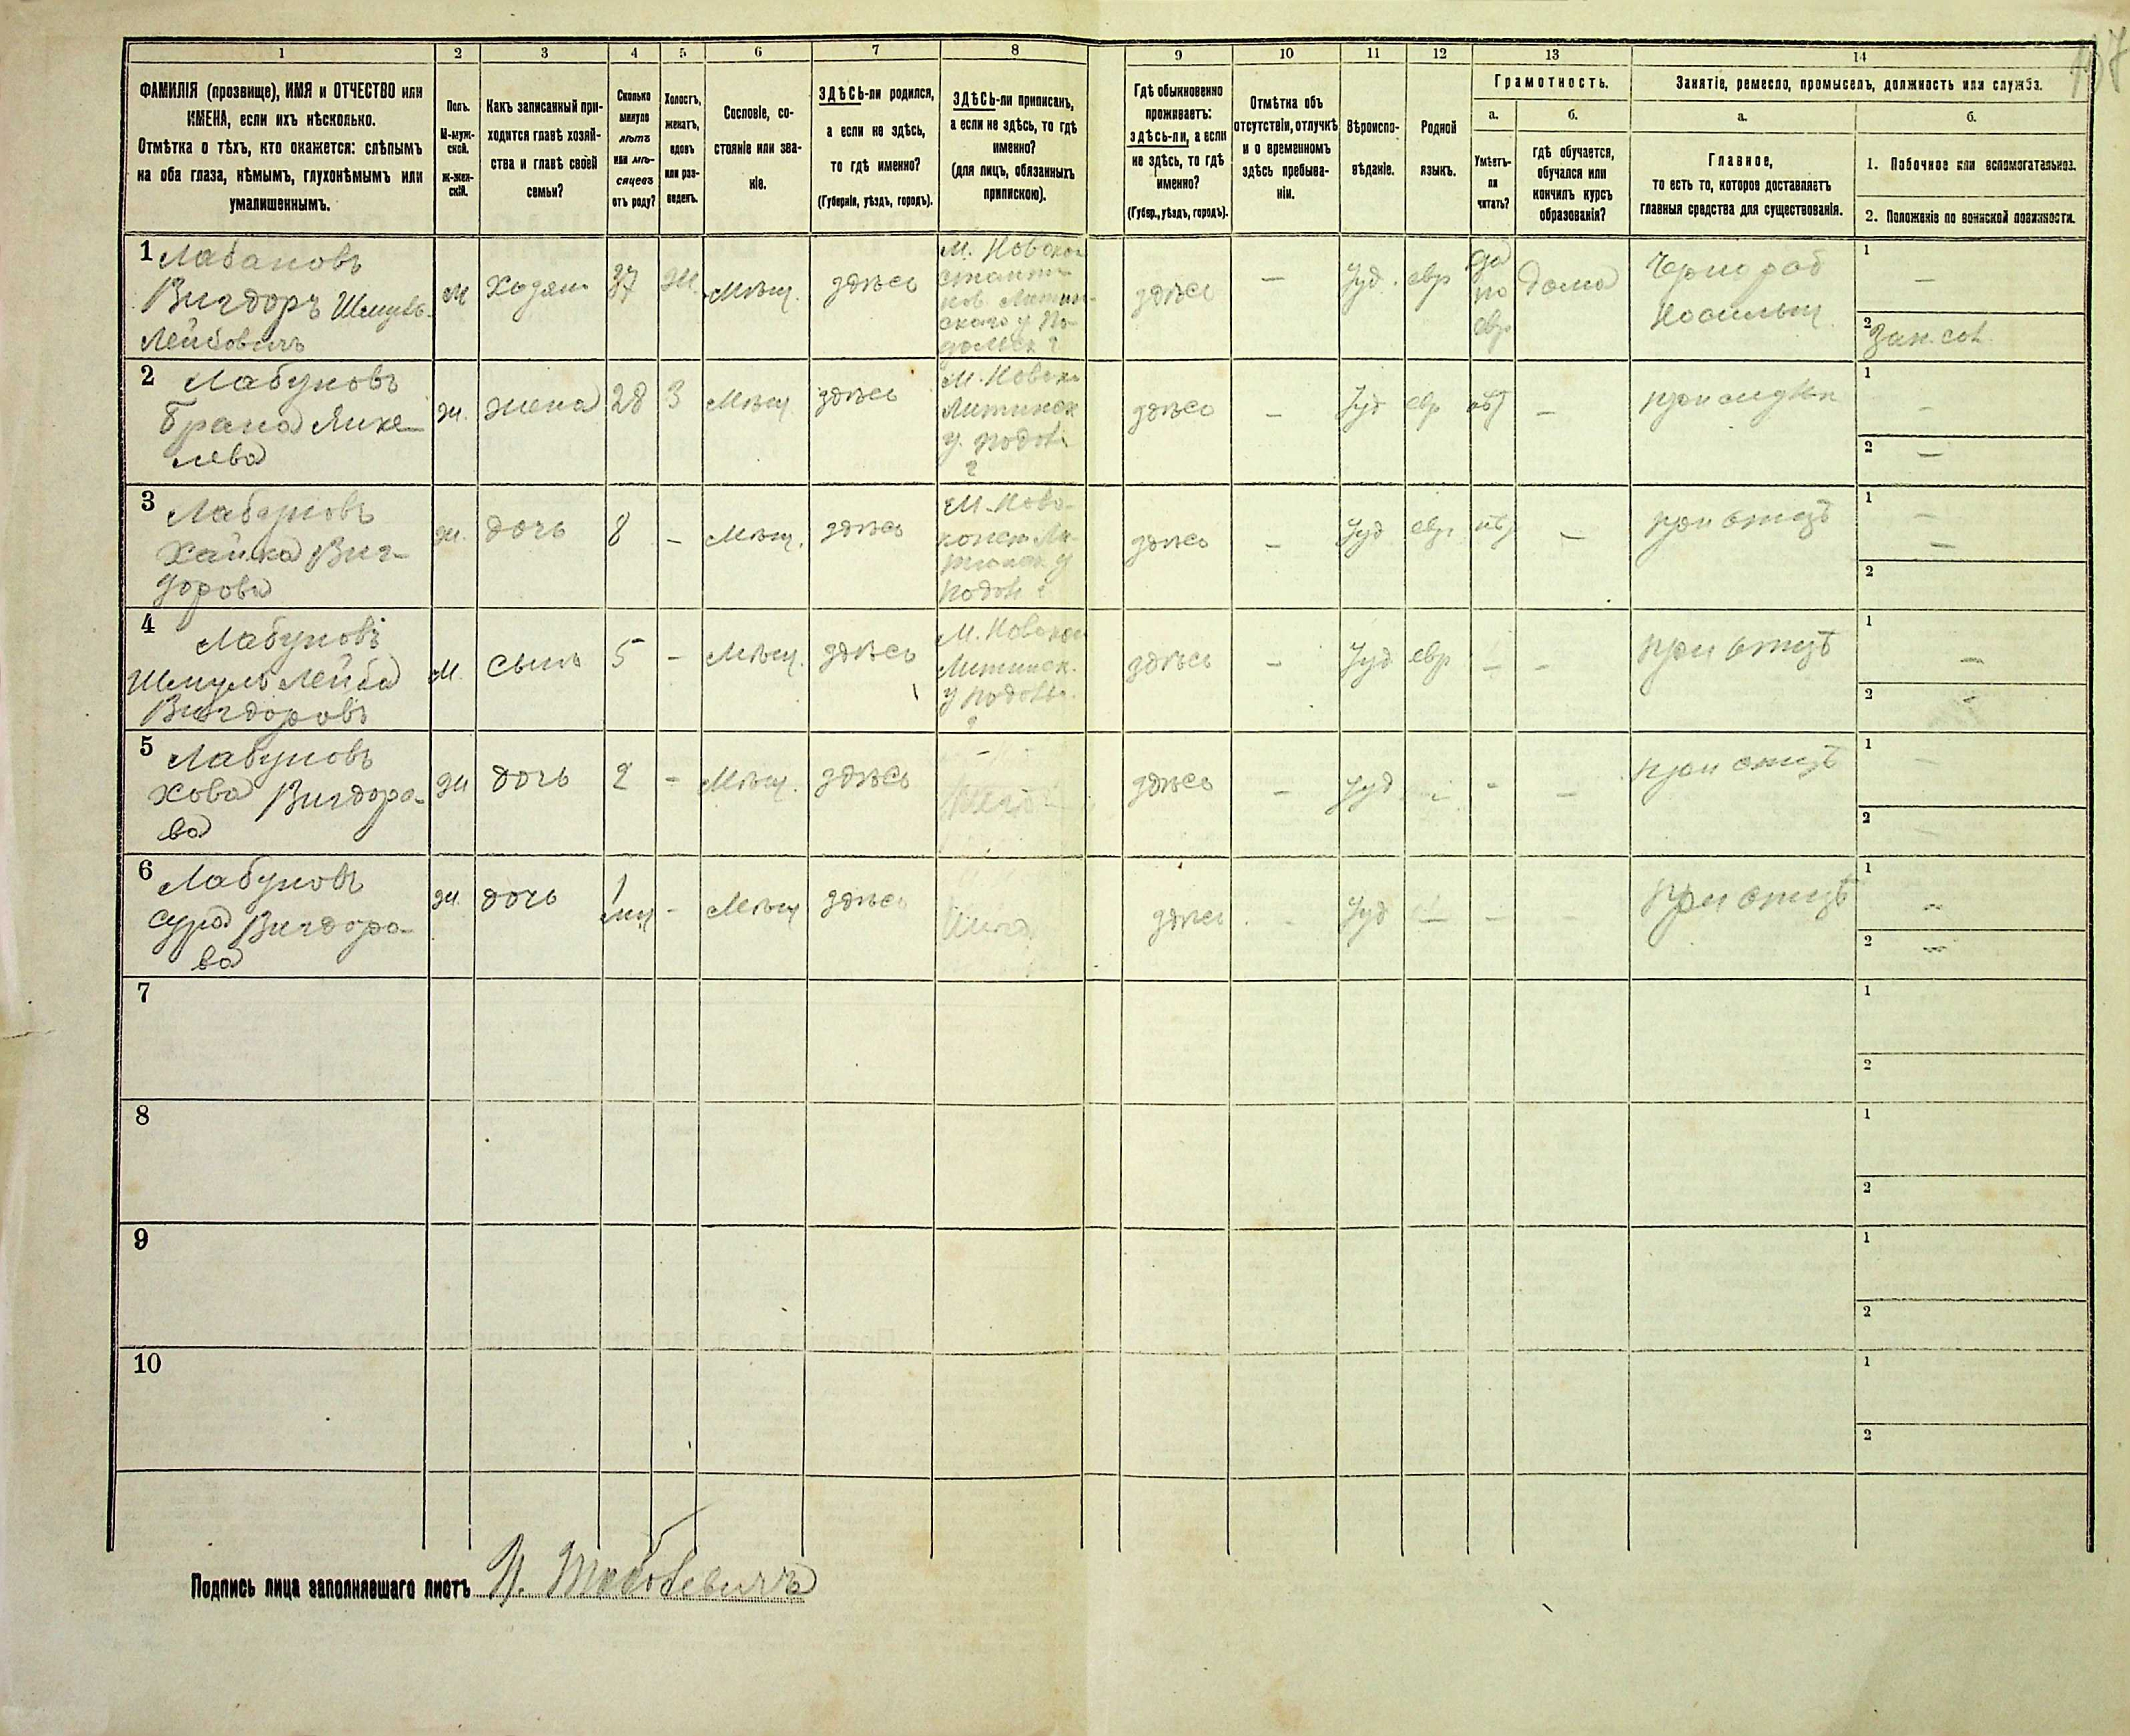 1 2 3 4 5 6 7 8 9 10 11 12 13 14
ФАМИЛІЯ (прозвище), ИМЯ и ОТЧЕСТВО или
ИМЕНА, если ихъ нѣсколько.
Отмѣтка о тѣхъ, кто окажется: слѣпымъ
на оба глаза, нѣмымъ, глухонѣмымъ или
умалишеннымъ.
Полъ.
М-муж-
ской.
Ж-жен-
скій.
Какъ записанный при-
ходится главѣ хозяй-
ства и главѣ своей
семьи?
Сколько
минуло
лѣтъ
или мѣ-
сяцевъ
отъ роду?
Холостъ,
женатъ,
вдовъ
или раз-
веденъ.
Сословіе, со-
стояніе или зва-
ніе.
ЗДѢСЬ-ли родился,
а если не здѣсь,
то гдѣ именно?
(Губернія, уѣздъ, городъ).
ЗДѢСЬ-ли приписанъ,
а если не здѣсь, то гдѣ
именно?
(для лицъ, обязанныхъ
припискою).
Гдѣ обыкновенно
проживаетъ:
здѣсь-ли, а если
не здѣсь, то гдѣ
именно?
(Губер., уѣздъ, городъ).
Отмѣтка объ
отсутствіи, отлучкѣ
и о временномъ
здѣсь пребыва-
ніи.
Вѣроиспо-
вѣданіе.
Родной
языкъ.
Грамотность.
а.
Умѣетъ-
ли
читать?
б.
гдѣ обучается,
обучался или
кончилъ курсъ
образованія?
Занятіе, ремесло, промыселъ, должность или служба.
а.
Главное,
то есть то, которое доставляетъ
главныя средства для существованія.
б.
1. Побочное или вспомогательное.
2. Положеніе по воинской повинности.
1 Лабановъ
Вигдоръ Шмуль-
Лейбовичъ
м
Хозяин
37
Ж.
Мѣщ.
здѣсь
здѣсь
—
Іуд.
евр
да
по
евр
дома
Чернораб
1 —
2
2 Лабуновъ
Брана Янке-
лева
ж.
жена
28
З
Мѣщ.
здѣсь
Литинск
у. Подол
г
здѣсь
—
Іуд
евр
—
1 —
2 —
3 Лабуновъ
Хайка Виг-
дорова
ж.
дочь
8
—
Мѣщ.
здѣсь
здѣсь
—
Іуд
евр
—
при отцѣ
1 —
—
2
4 Лабуновъ
Шмуль Лейба
Вигдоровъ
м.
сынъ
5
—
Мѣщ.
здѣсь
Литинск.
у Подол.
г
здѣсь
—
Іуд
евр
—
—
при отцѣ
1 —
2 —
5 Лабуновъ
Хова Вигдоро-
ва
ж
дочь
2
-
Мѣщ.
здѣсь
здѣсь
—
Іуд
-
-
—
при отцѣ
1 —
2 —
6 Лабуновъ
Сура Вигдоро-
ва
ж.
дочь
1
-
Мѣщ
здѣсь
здѣсь
-
Іуд
—
—
-
при отцѣ
1 —
2 —
7
1
2
8
1
2
9
1
2
10
1
2
Подпись лица заполнявшаго листъ